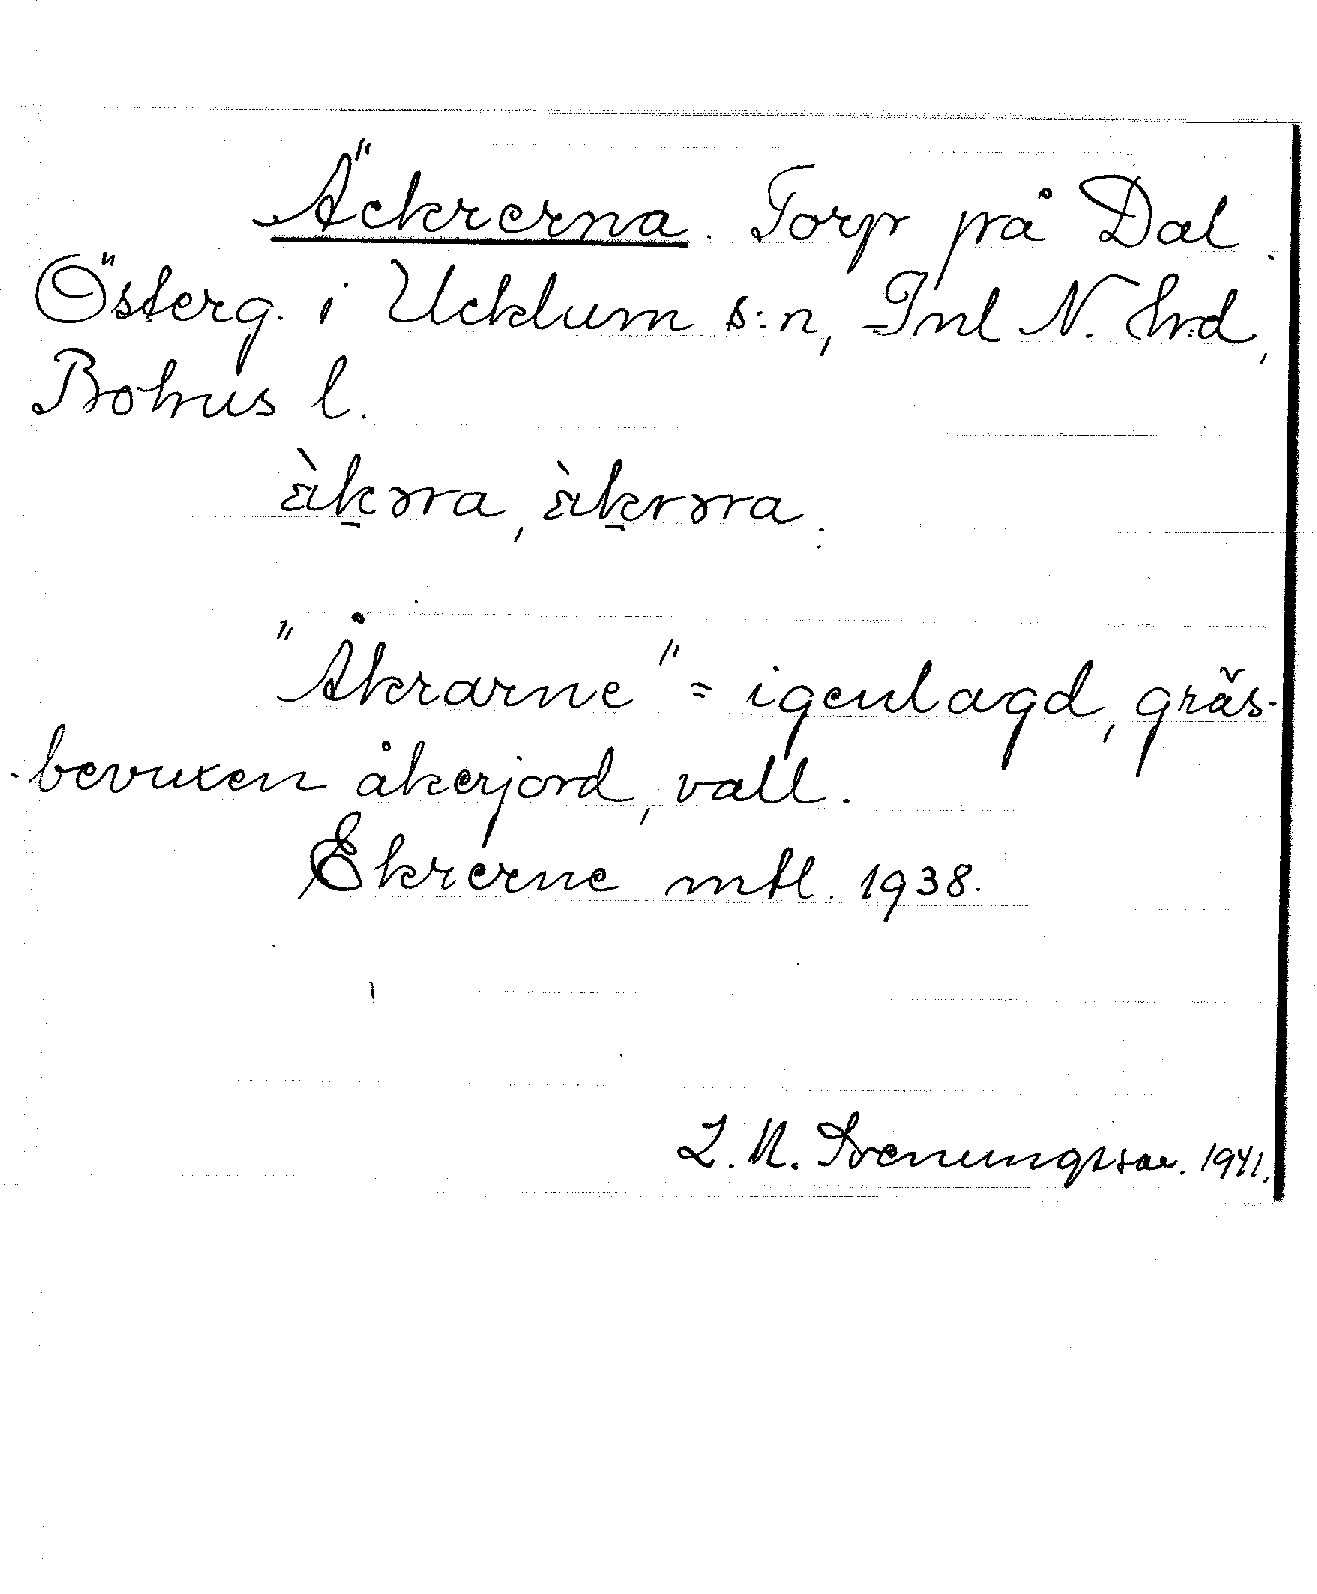 Äckrerna. Torp på Dal
Österg. i Ucklum s:n, Inl N. hrd,
Bohus l.
àkərra, àkrərra.
"Åkrarne" = igenlagd, gräs-
bevuxen åkerjord, vall.
Ekrerne mtl. 1938.
L. N. Svenungsson. 1941.